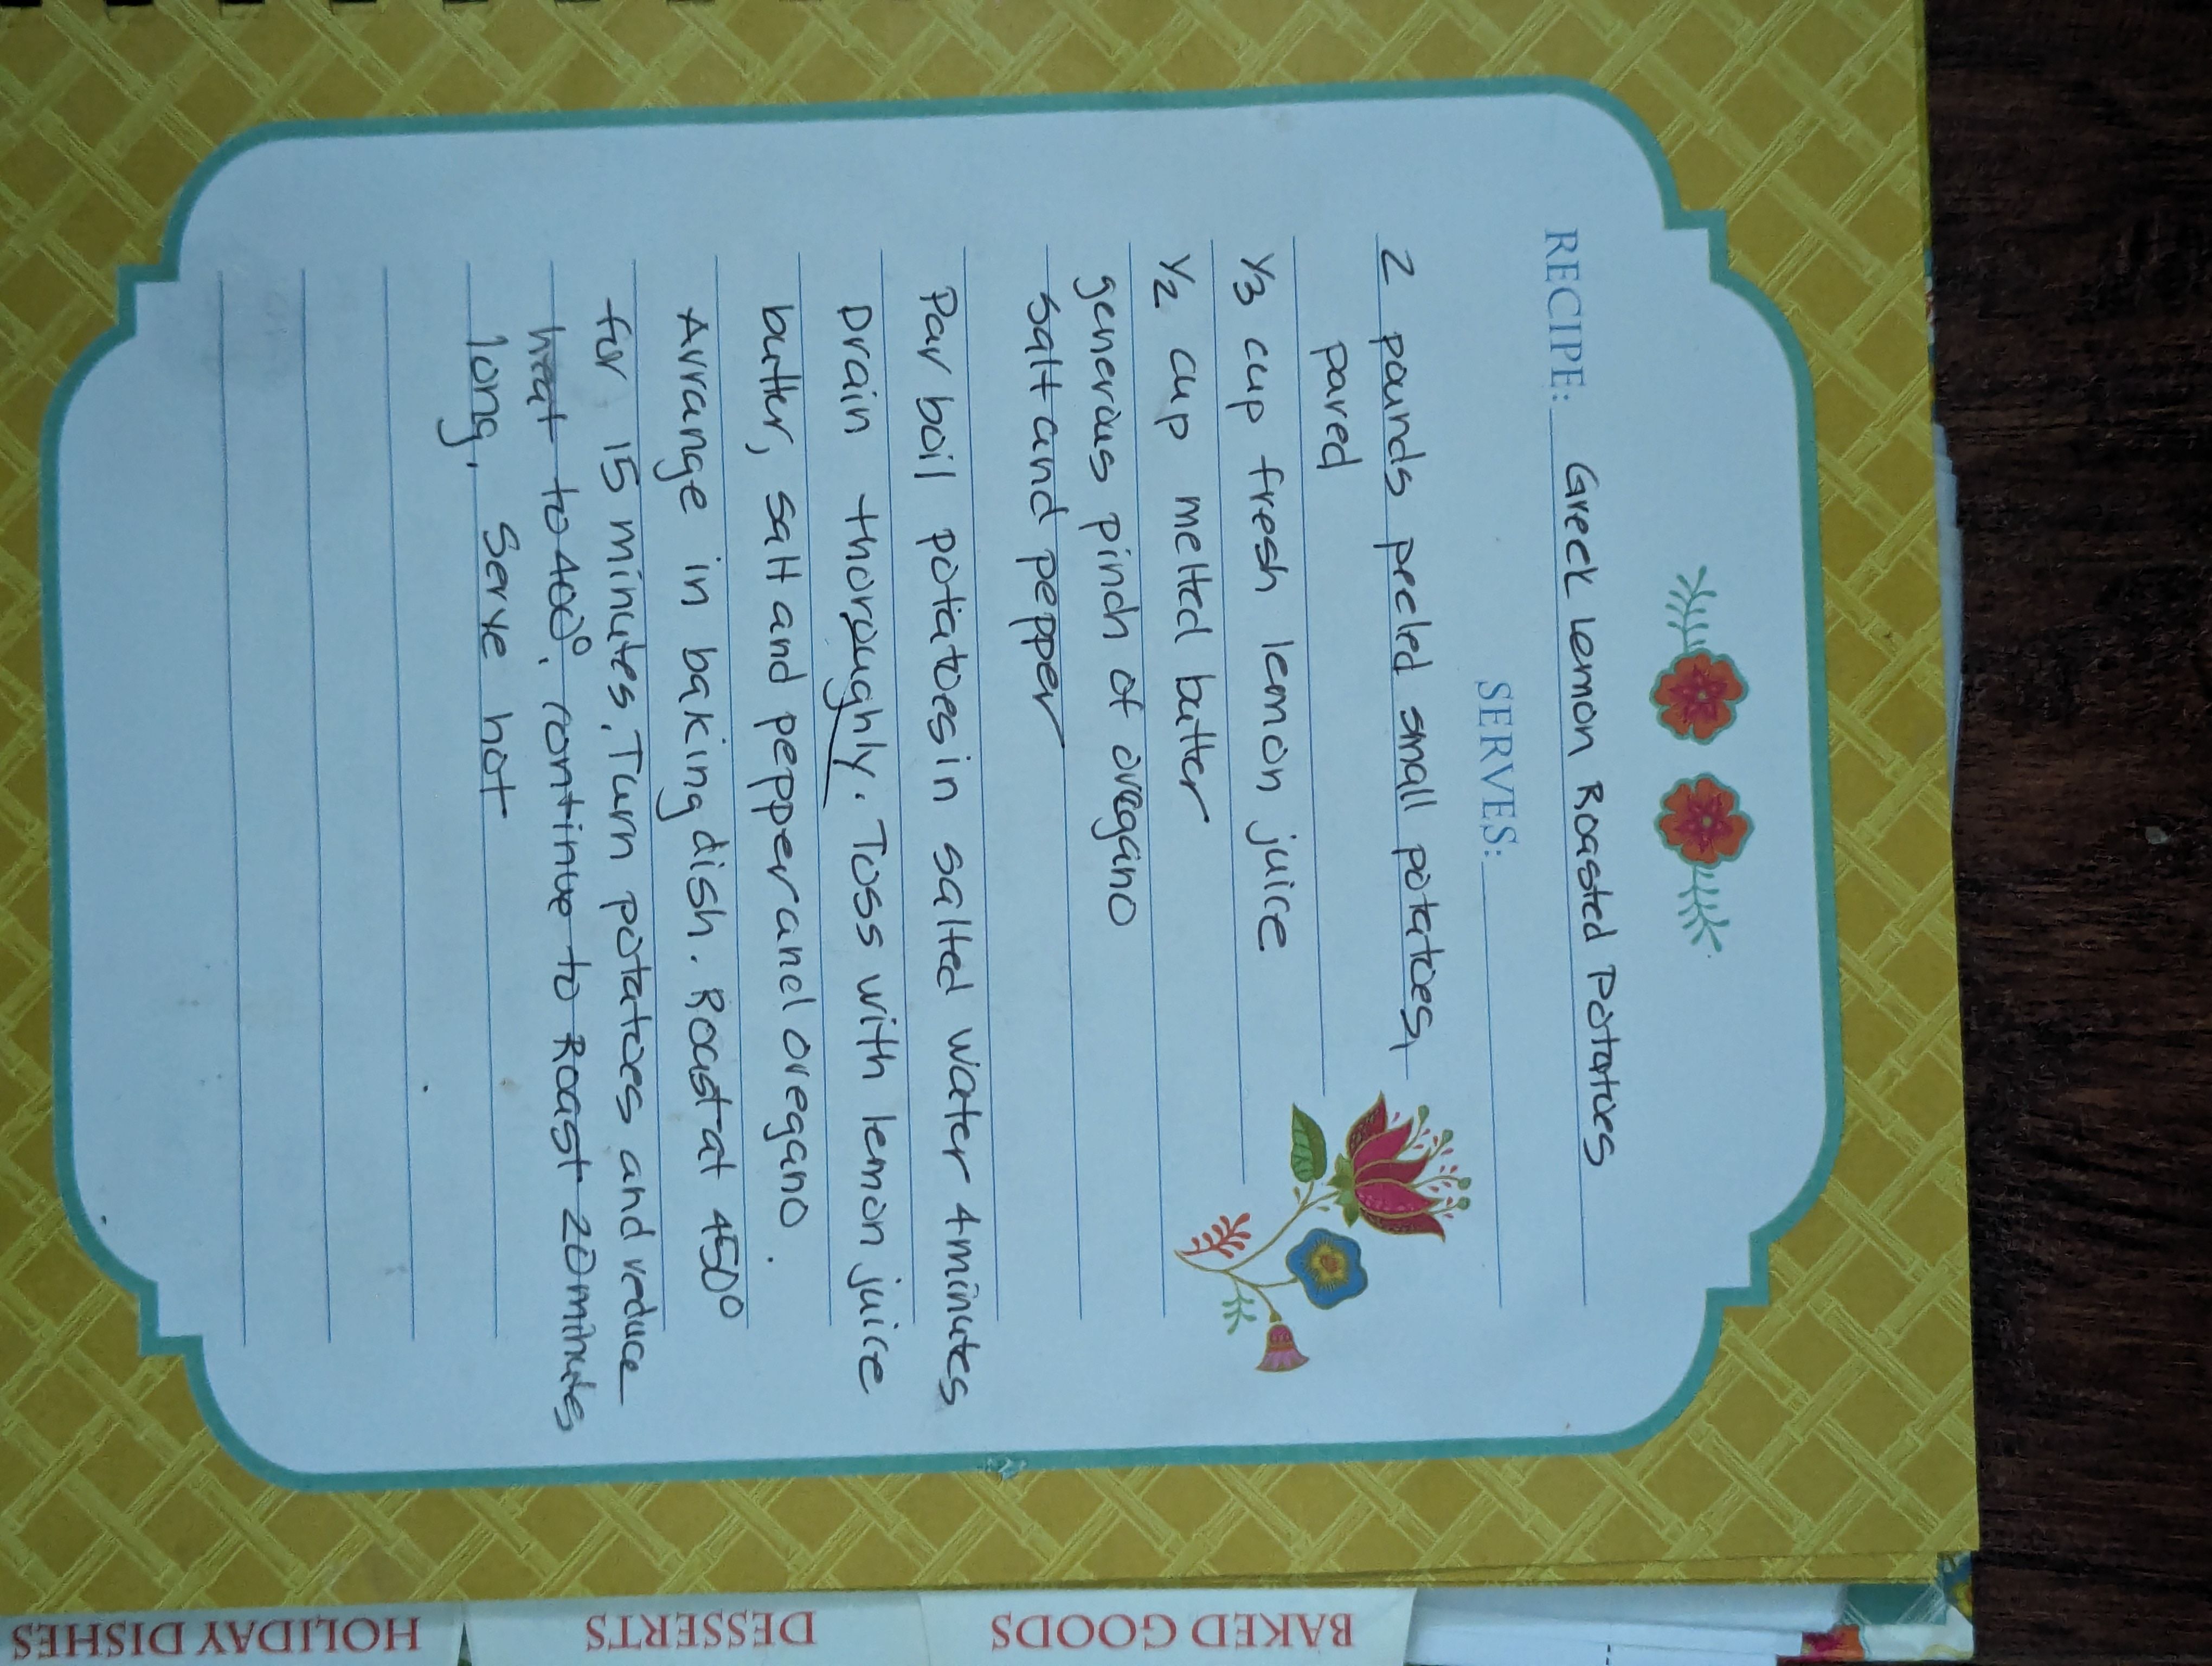 RECIPE: Greek Lemon Roasted Potatoes
SERVES:
2 pounds peeled small potatoes,
pared
1/3 cup fresh lemon juice
1/2 cup melted butter
generous pinch of oregano
salt and pepper
Par boil potatoes in salted water 4 minutes
Drain thoroughly. Toss with lemon juice
butter, salt and pepper and oregano.
Arrange in baking dish. Roast at 450°
for 15 minutes. Turn potatoes and reduce
heat to 400°. continue to Roast 20 minutes
long. Serve hot
BAKED GOODS
DESSERTS
HOLIDAY DISHES